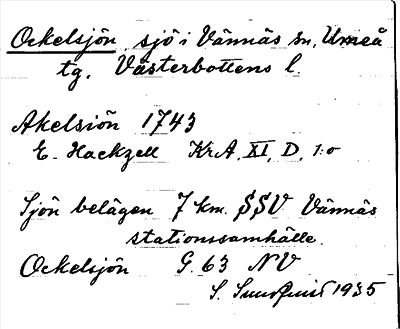 Ockelsjön, sjö i Vännäs sn, Umeå
tg. Västerbottens l.
Akelsiön 1743
E. Hackzell KrA, XI, D, 1:o
Sjön belägen 7 km. SSV Vännäs
stationssamhälle.
Ockelsjön G. 63 NV
S. Sundquist 1935